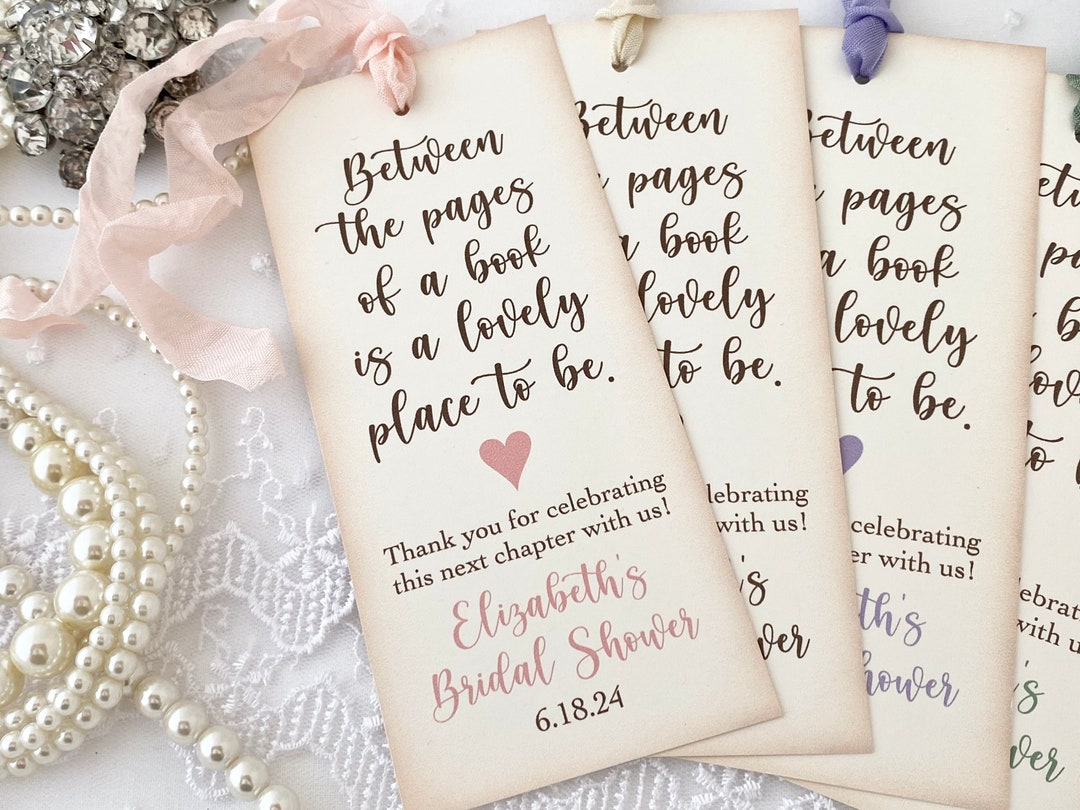 Between
the pages
of a book
is a lovely
place to be.
Thank you for celebrating
this next chapter with us!
Elizabeth's
Bridal Shower
6.18.24
Between
pages
a book
lovely
to be.
lebrating
with us!
's
wer
Between
pages
a book
lovely
to be.
celebrating
er with us!
th's
hower
etw
pa
b
lov
to
ebrat
with u
's
howe